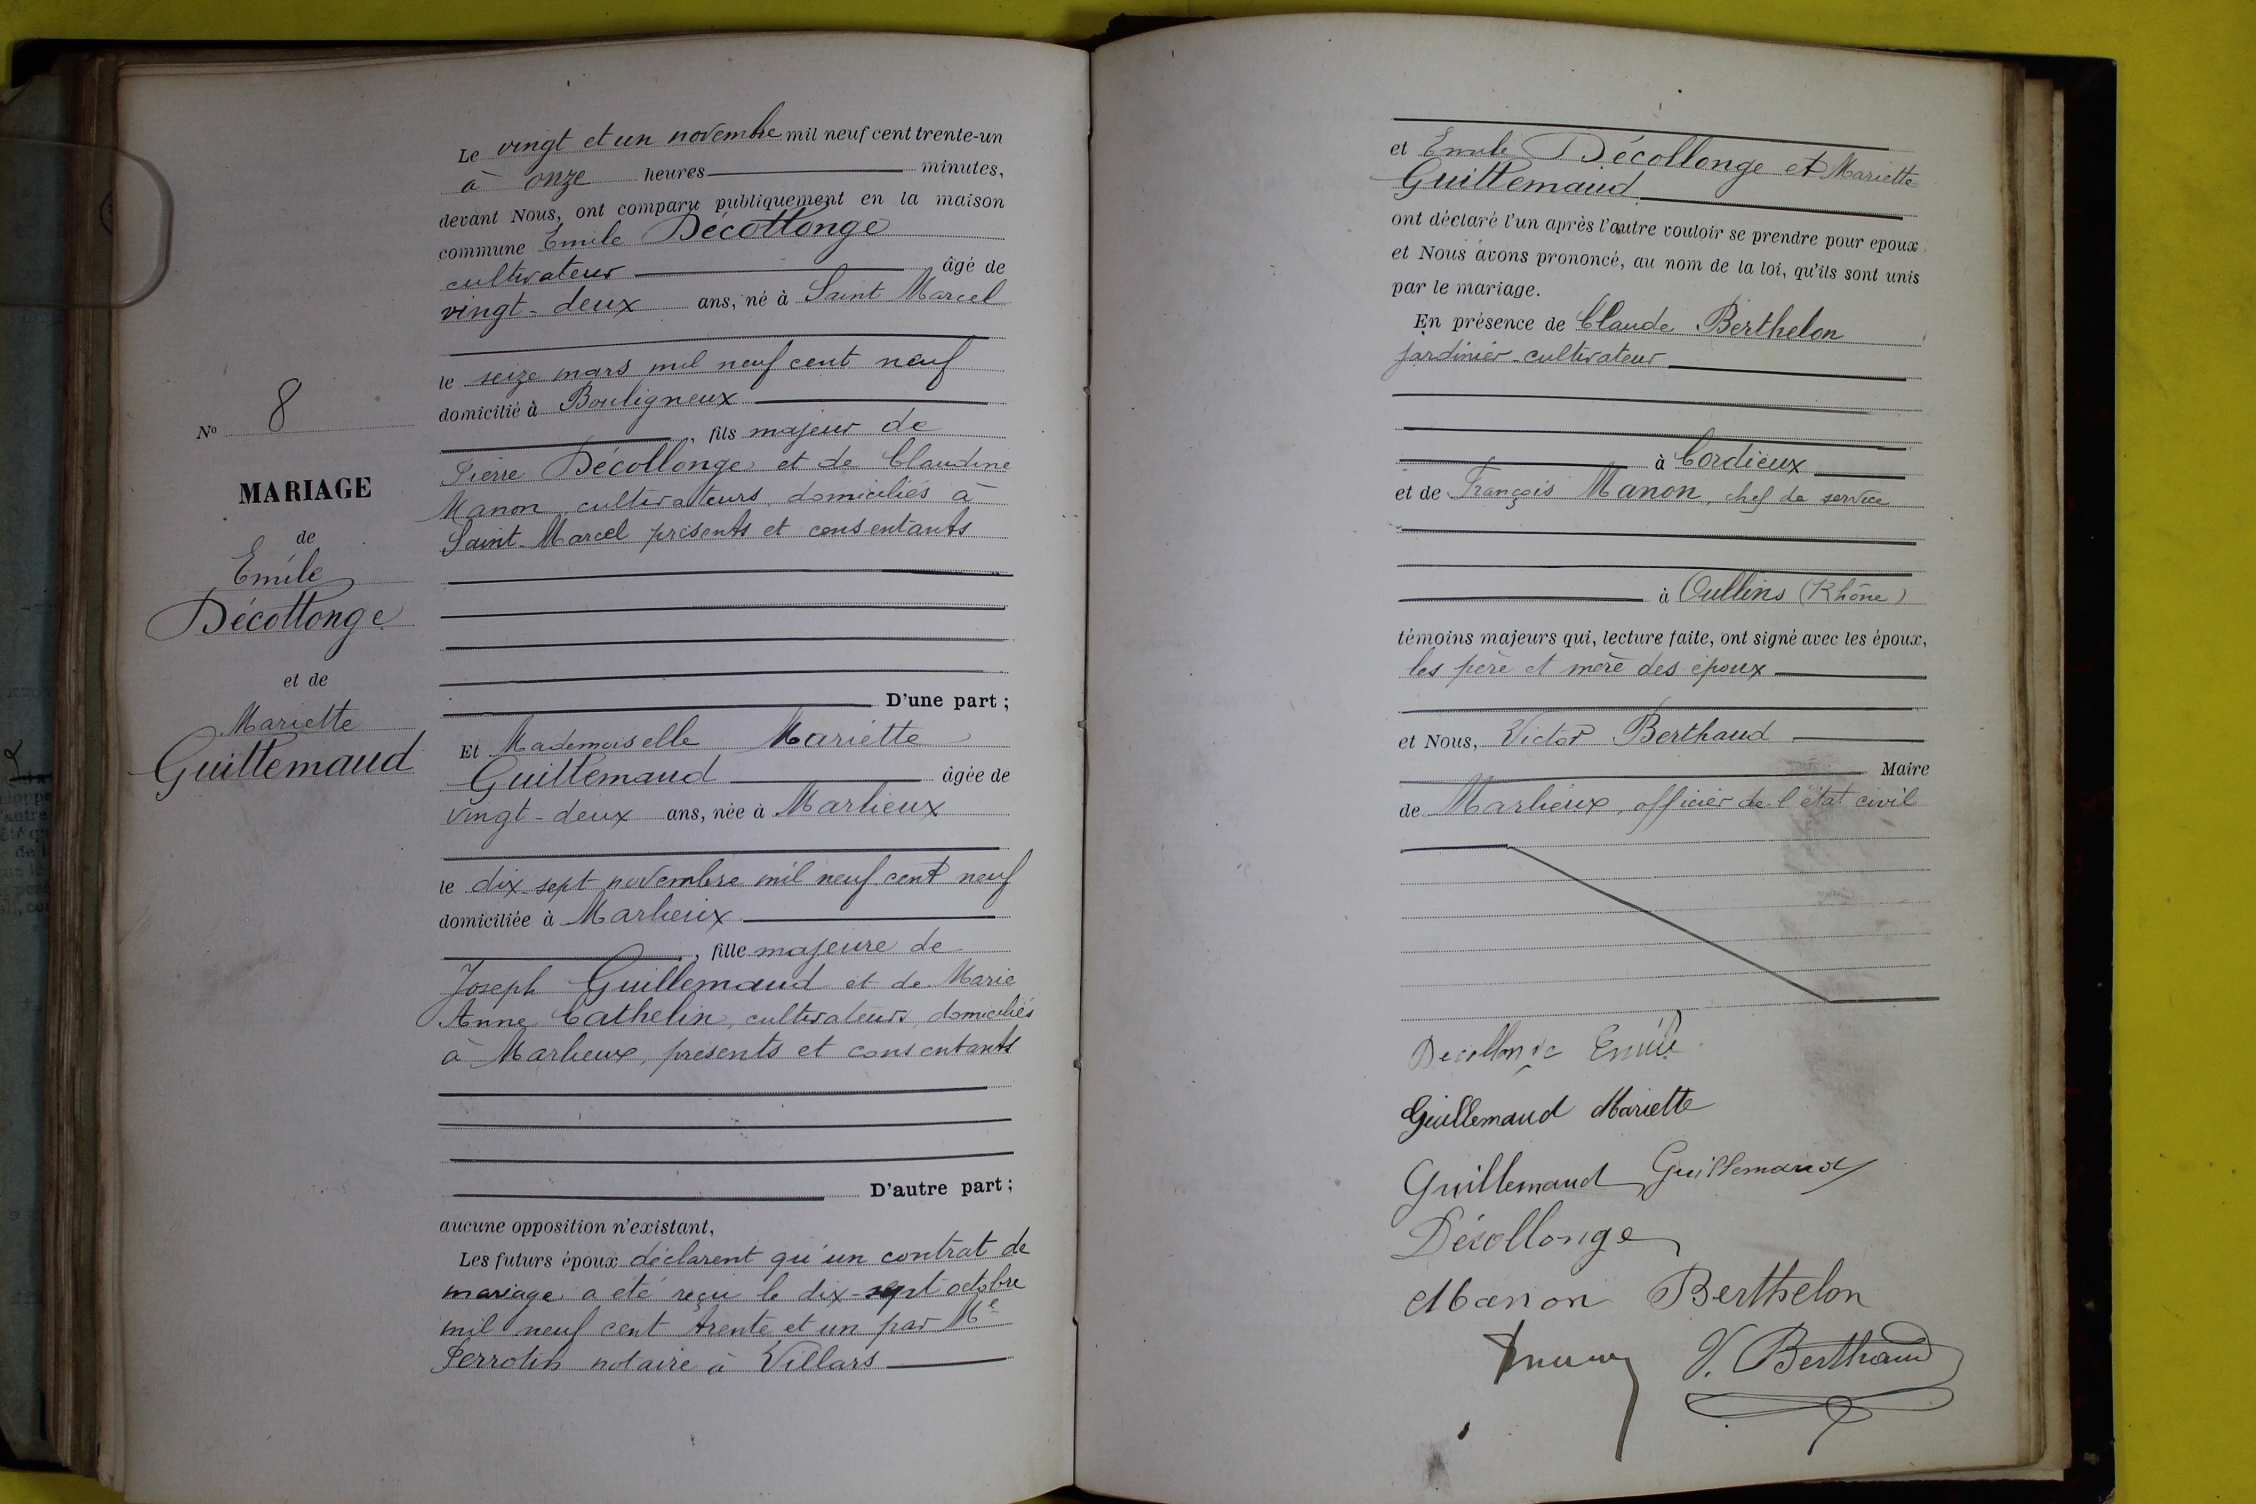 N° 8
MARIAGE
de
Emile
Décollonge
et de
Mariette
Guillemaud
Le vingt et un novembre mil neuf cent trente-un
à onze heures minutes,
devant Nous, ont comparu publiquement en la maison
commune Emile Décollonge
cultivateur âgé de
vingt-deux ans, né à Saint Marcel
le seize mars mil neuf cent neuf
domicilié à Bouligneux
, fils majeur de
Pierre Décollonge et de Claudine
Manon, cultivateurs, domiciliés à
Saint-Marcel présents et consentants
D'une part ;
Et Mademoiselle Mariette
Guillemaud âgée de
vingt-deux ans, née à Marlieux
le dix-sept novembre mil neuf cent neuf
domiciliée à Marlieux
, fille majeure de
Joseph Guillemaud et de Marie
Anne Cathelin, cultivateurs, domiciliés
à Marlieux, présents et consentants
D'autre part ;
aucune opposition n'existant,
Les futurs époux déclarent qu'un contrat de
mariage a été reçu le dix-sept octobre
mil neuf cent trente et un par Me
Perrotin notaire à Villars
et Emile Décollonge et Mariette
Guillemaud
ont déclaré l'un après l'autre vouloir se prendre pour epoux
et Nous avons prononcé, au nom de la loi, qu'ils sont unis
par le mariage.
En présence de Claude Berthelon
jardinier-cultivateur
à Cordieux
et de François Manon, chef de service
à Oullins (Rhône)
témoins majeurs qui, lecture faite, ont signé avec les époux,
les père et mère des époux
et Nous, Victor Berthaud
Maire
de Marlieux, officier de l'état civil
Decollonge Emile
Guillemaud Mariette
Guillemaud Guillemaud
Décollonge
Manon Berthelon
V. Berthaud